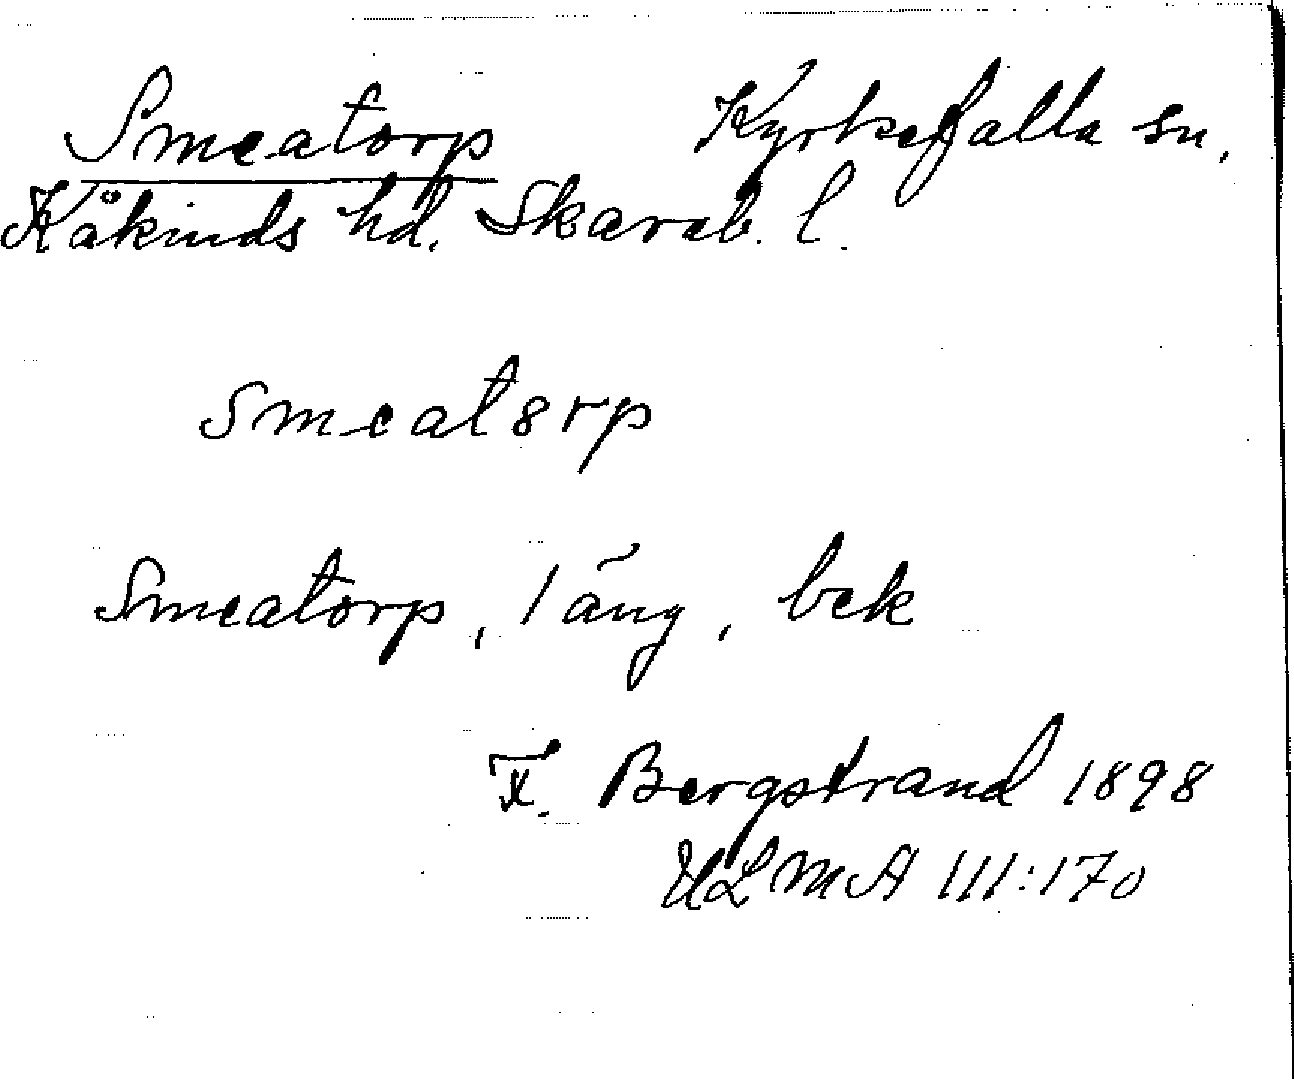 Smeatorp Kyrkefalla sn,
Kåkinds hd. Skarab. l.
smeat8rp
Smeatorp, 1 äng, bek
F. Bergstrand 1898
ULMA 111:170